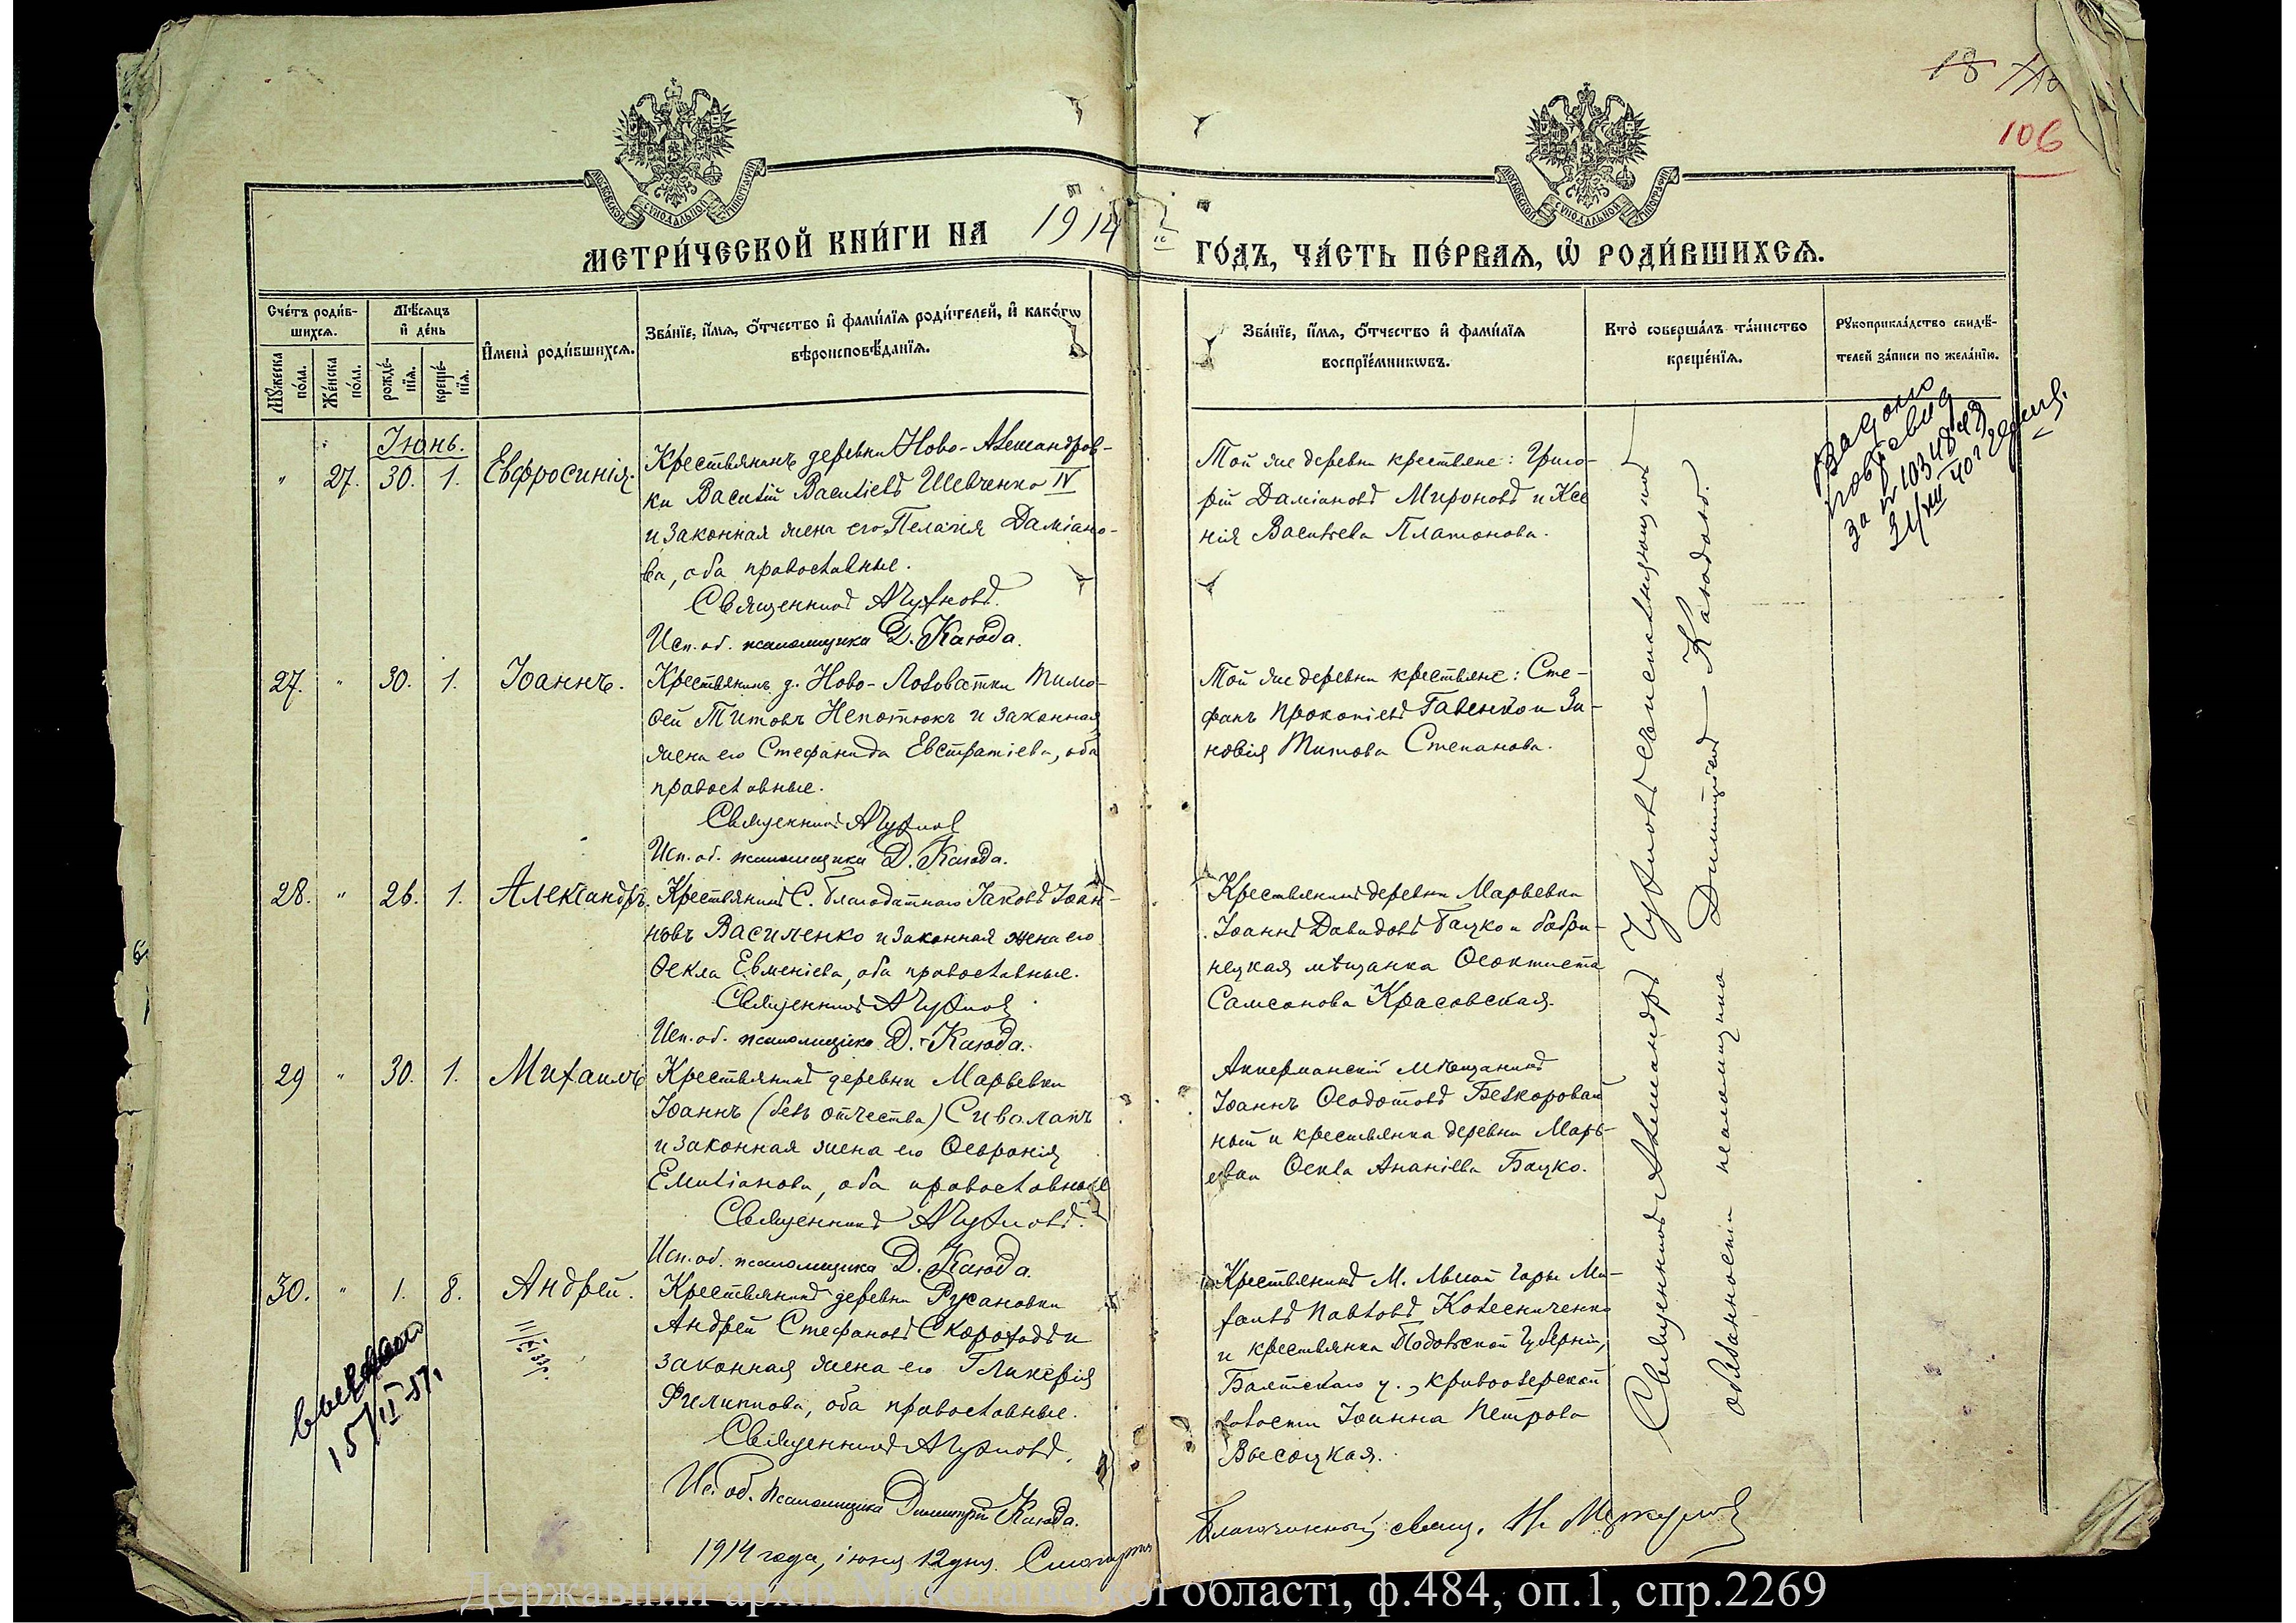 18
106
МОСКОВСКОЙ СѴНОДАЛЬНОЙ ТИПОГРАФІИ
МОСКОВСКОЙ СѴНОДАЛЬНОЙ ТИПОГРАФІИ
МЕТРИ́ЧЕСКОЙ КНИ́ГИ НА 1914 ГО́ДЪ, ЧА́СТЬ ПЕ́РВАѦ, Ѡ҆ РОДИ́ВШИХСѦ.
Сче́тъ роди́вшихсѧ.
Мѹ́жеска по́ла.
Же́нска по́ла.
Мѣ́сѧцъ и҆ де́нь
рожде́нїѧ.
креще́нїѧ.
И҆мена̀ роди́вшихсѧ.
Зва́нїе, и҆́мѧ, ѻ҆́тчество и҆ фами́лїѧ роди́телей, и҆ како́гѡ
вѣроисповѣ́данїѧ.
Зва́нїе, и҆́мѧ, ѻ҆́тчество и҆ фами́лїѧ
воспрїе́мникѡвъ.
Кто̀ соверша́лъ та́инство
креще́нїѧ.
Рѹкоприкла́дство свидѣ́-
телей за́писи по жела́нїю.
Іюнь.
" 27. 30. 1. Евфросинія.
Крестьянинъ деревни Ново-Александров-
ки Василій Васильевъ Шевченко IV
и законная жена его Пелагія Даміано-
ва, оба православные.
Священникъ А Чухновъ.
Исп. об. псаломщика Д. Каюда.
Той же деревни крестьяне: Григо-
рій Даміановъ Мироновъ и Ксе
нія Васильева Платонова.
за № 10348
31/VIII 40 г
27. " 30. 1. Іоаннъ.
Крестьянинъ д. Ново-Лозоватки Тимо-
ѳей Титовъ Непотюкъ и законная
жена его Стефанида Евстратіева, оба
православные.
Священникъ А Чухнов
Исп. об. псаломщика Д. Каюда.
Той же деревни крестьяне: Сте-
фанъ Прокопіевъ Гавенко и Зи-
новія Титова Степанова.
28. " 26. 1. Александръ.
Крестьянинъ С. Благодатнаго Іаковъ Іоан-
новъ Василенко и законная жена его
Ѳекла Евменіева, оба православные.
Священникъ А Чухнов
Исп. об. псаломщика Д. Каюда.
Крестьянинъ деревни Марьевки
Іоаннъ Давидовъ Бацко и бобри-
нецкая мѣщанка Ѳеоктиста
Самсонова Красовская.
29 " 30. 1. Михаилъ
Крестьянинъ деревни Марьевки
Іоаннъ (безъ отчества) Сиволапъ
и законная жена его Ѳевронія
Емиліанова, оба православные
Священникъ А Чухновъ.
Исп. об. псаломщика Д. Каюда.
Аккерманскій мѣщанинъ
Іоаннъ Ѳеодотовъ Безкоровай
ный и крестьянка деревни Марь-
евки Ѳекла Ананіева Бацко.
30. " 1. 8. Андрей.
Крестьянинъ деревни Русановки
Андрей Стефановъ Скороходъ и
законная жена его Гликерія
Филиппова, оба православные.
Священникъ А Чухновъ.
Ис. об. псаломщика Димитрій Каюда.
15/II-57.
Крестьянинъ М. Лысой Горы Ми-
хаилъ Павловъ Колесниченко
и крестьянка Подольской губерніи,
Балтскаго у., кривоозерской
волости Іоанна Петрова
Высоцкая.
Священникъ Александръ Чухновъ съ исполняющимъ
обязанности псаломщика Димитріемъ Каюдою.
1914 года, іюня 12 дня. Смотрѣлъ Благочинный свящ. Н.
Державний архів Миколаївської області, ф.484, оп.1, спр.2269